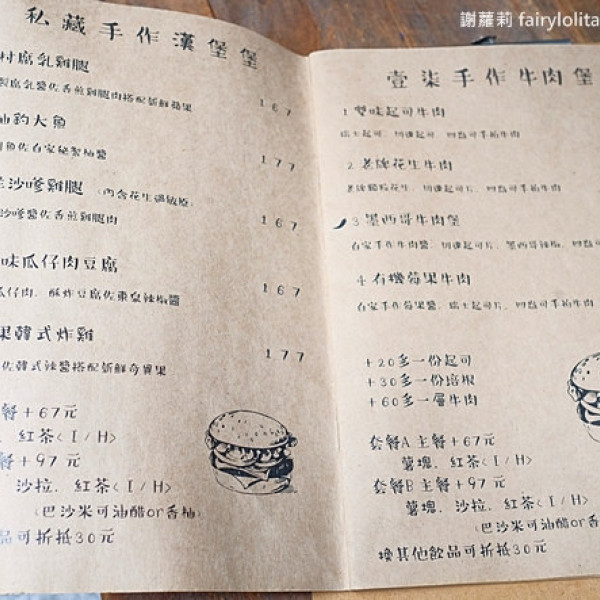 謝蘿莉 fairylolita
私藏手作漢堡堡
村腐乳雞腿
腐乳醬佐香煎雞腿肉搭配新鮮蘋果
167
釣大魚
魚佐自家秘製柚醬
177
沙嗲雞腿 (內含花生過敏原)
沙嗲醬佐香煎雞腿肉
167
味瓜仔肉豆腐
瓜仔肉．酥炸豆腐佐東泉辣椒醬
167
果韓式炸雞
佐韓式辣醬搭配新鮮奇異果
177
餐+67元
．紅茶(I/H)
餐+97元
．沙拉．紅茶(I/H)
(巴沙米可油醋or香柚)
品可折抵30元
壹柒手作牛肉堡
1 雙味起司牛肉
瑞士起司．切達起司．四盎司手拍牛肉
2 老牌花生牛肉
老牌顆粒花生．切達起司片．四盎司手拍牛肉
3 墨西哥牛肉堡
自家手作牛肉醬．切達起司片．墨西哥辣椒．四盎司
4 有機莓果牛肉
自家手作莓果醬．瑞士起司片．四盎司手拍牛肉
+20多一份起司
+30多一份培根
+60多一層牛肉
套餐A 主餐+67元
薯塊．紅茶(I/H)
套餐B 主餐+97元
薯塊．沙拉．紅茶(I/H)
(巴沙米可油醋or香
換其他飲品可折抵30元